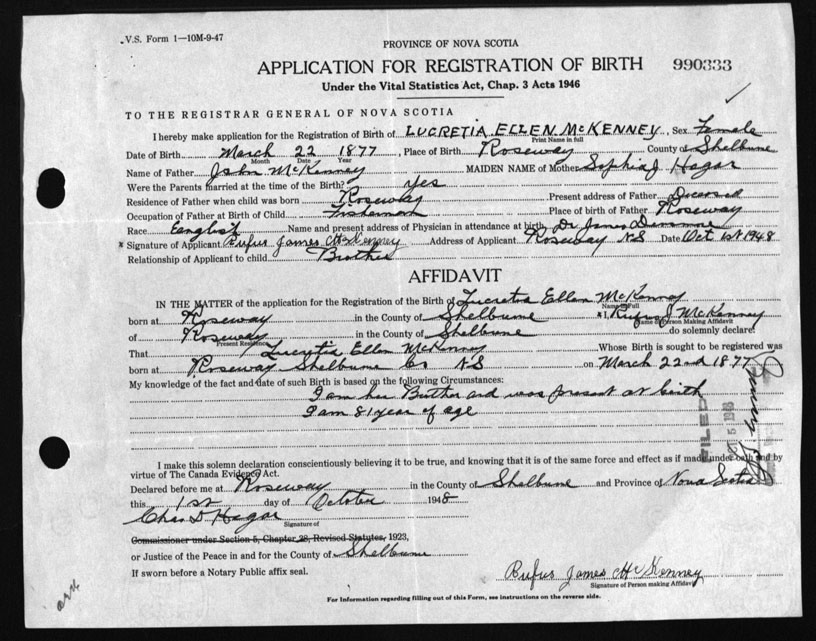 V.S. Form 1—10M-9-47
PROVINCE OF NOVA SCOTIA
APPLICATION FOR REGISTRATION OF BIRTH 990333
Under the Vital Statistics Act, Chap. 3 Acts 1946
TO THE REGISTRAR GENERAL OF NOVA SCOTIA
I hereby make application for the Registration of Birth of LUCRETIA ELLEN McKENNEY, Sex Female
Print Name in full
Date of Birth March 22 1877, Place of Birth Roseway County of Shelburne
Month Date Year
Name of Father John McKenney MAIDEN NAME of Mother Sophia J Hagar
Were the Parents married at the time of the Birth? Yes
Residence of Father when child was born Roseway Present address of Father Deceased
Occupation of Father at Birth of Child Fisherman Place of birth of Father Roseway
Race English Name and present address of Physician in attendance at birth Dr James
x Signature of Applicant Rufus James McKenney Address of Applicant Roseway N S Date Oct 1st 1948
Relationship of Applicant to child Brother
AFFIDAVIT
IN THE MATTER of the application for the Registration of the Birth of Lucretia Ellen McKenney
Name in Full
born at Roseway in the County of Shelburne x I, Rufus J McKenney
Name of Person Making Affidavit
of Roseway in the County of Shelburne do solemnly declare:
Present Residence
That Lucretia Ellen McKenney Whose Birth is sought to be registered was
born at Roseway Shelburne Co N S on March 22nd 1877
My knowledge of the fact and date of such Birth is based on the following Circumstances:
I am her Brother and was present at birth
I am 81 year of age
FILED
I make this solemn declaration conscientiously believing it to be true, and knowing that it is of the same force and effect as if made under oath and by
virtue of The Canada Evidence Act.
Declared before me at Roseway in the County of Shelburne and Province of Nova Scotia
this 1st day of October 1948
Chas D Hagar
Signature of
Commissioner under Section 5, Chapter 28, Revised Statutes, 1923,
or Justice of the Peace in and for the County of Shelburne
If sworn before a Notary Public affix seal.
Rufus James McKenney
Signature of Person making Affidavit
For Information regarding filling out of this Form, see instructions on the reverse side.